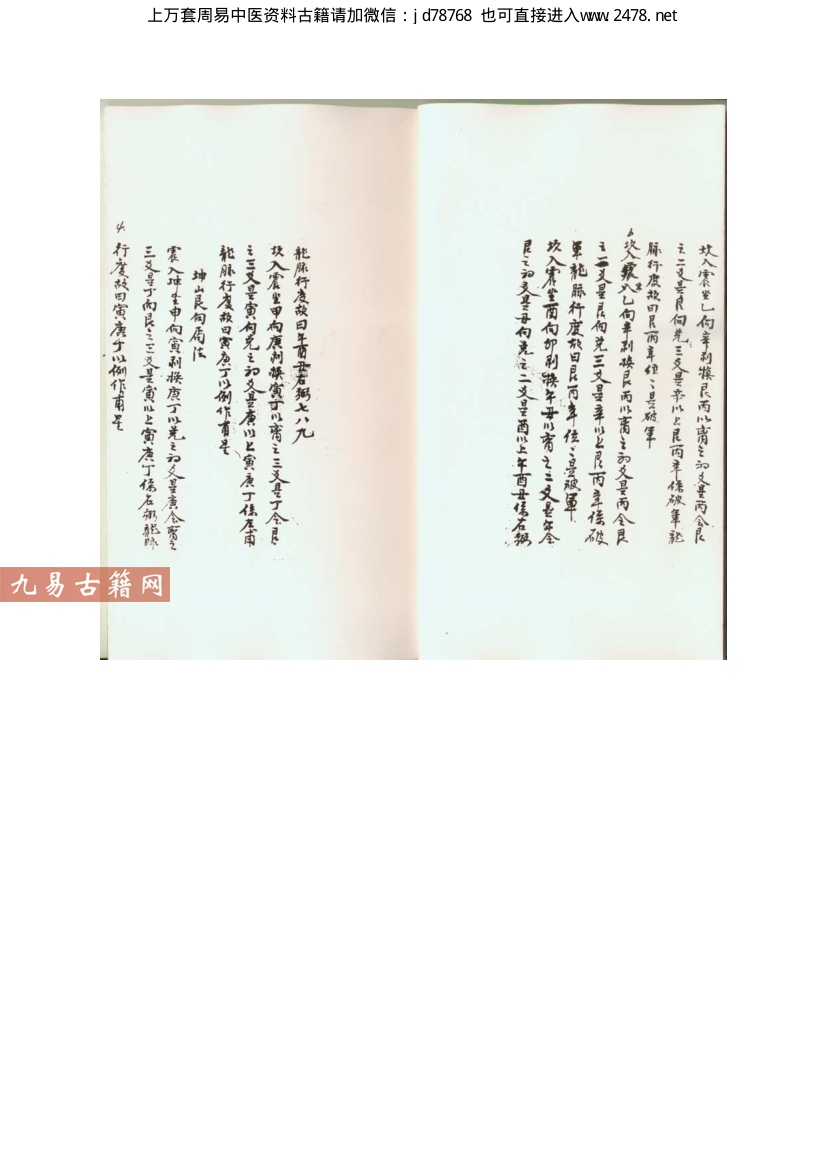 上万套周易中医资料古籍请加微信：jd78768 也可直接进入www.2478.net
坎入震坐乙向辛剥换艮丙以离之初爻是丙合艮
之二爻是艮向兑三爻是辛以上艮丙辛係破軍龍
脉行度故曰艮丙辛位々是破軍
坎入震坐乙向辛剥换艮丙以离之初爻是丙合艮
之二爻是艮向兑三爻是辛以上艮丙辛係破
軍龍脉行度故曰艮丙辛位々是破軍
坎入震坐酉向卯剥换午丑以离之二爻是午合
艮之初爻是丑向兑之二爻是酉以上午酉丑係右弼
龍脉行度故曰午酉丑右弼七八九
坎入震坐甲向庚剥换寅丁以离之三爻是丁合艮
之三爻是寅向兑之初爻是庚以上寅庚丁係
龍脉行度故曰寅庚丁以例作甫是
坤山艮向局法
震入坤坐申向寅剥换庚丁以兑之初爻是庚合离之
三爻是丁向艮之三爻是寅以上寅庚丁係右弼龍脉
行度故曰寅庚丁以例作甫是
九易古籍网